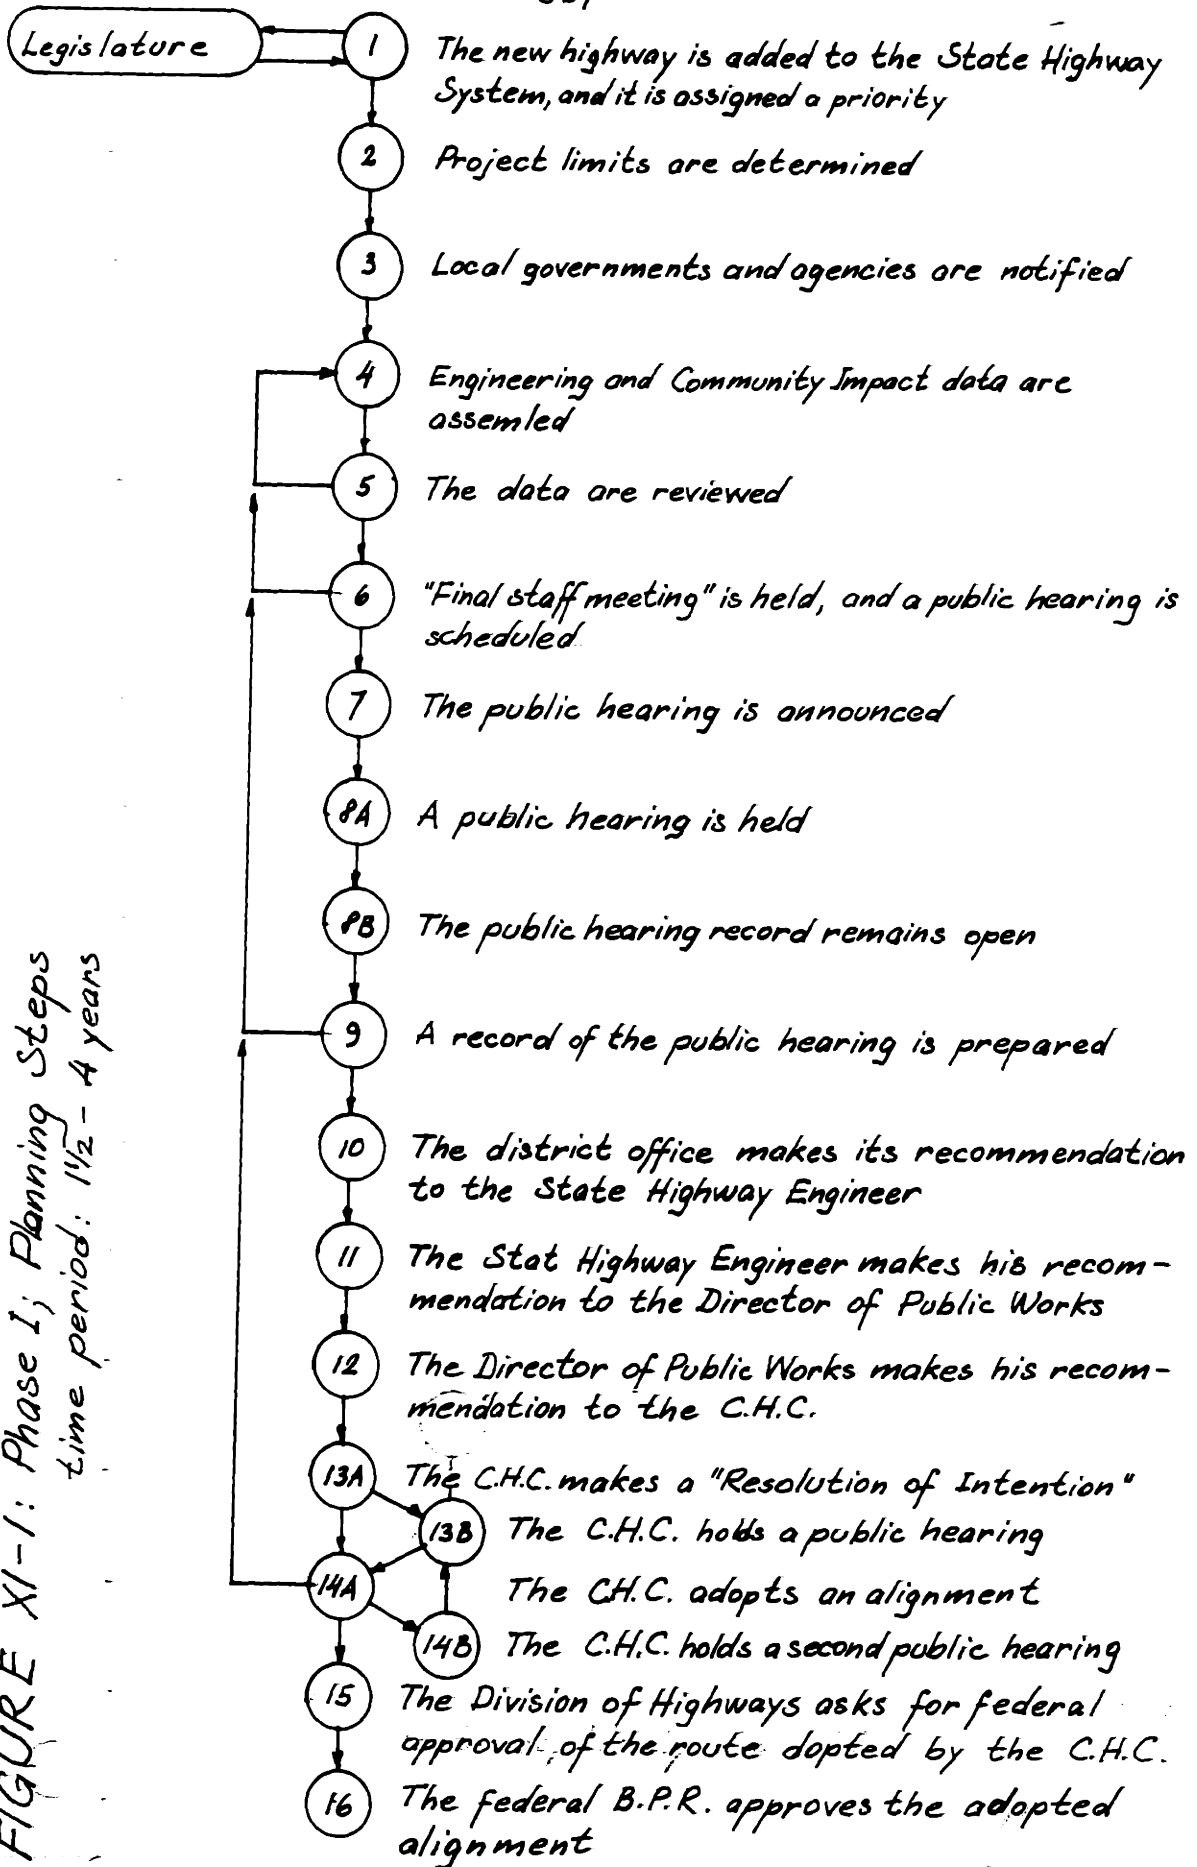 Legislature
1
The new highway is added to the State Highway
System, and it is assigned a priority
2
Project limits are determined
3
Local governments and agencies are notified
4
Engineering and Community Impact data are
assemled
5
The data are reviewed
6
"Final staff meeting" is held, and a public hearing is
scheduled
7
The public hearing is announced
8A
A public hearing is held
8B
The public hearing record remains open
9
A record of the public hearing is prepared
10
The district office makes its recommendation
to the State Highway Engineer
11
The Stat Highway Engineer makes his recom-
mendation to the Director of Public Works
12
The Director of Public Works makes his recom-
mendation to the C.H.C.
13A
The C.H.C. makes a "Resolution of Intention"
13B
The C.H.C. holds a public hearing
14A
The C.H.C. adopts an alignment
14B
The C.H.C. holds a second public hearing
15
The Division of Highways asks for federal
approval of the route dopted by the C.H.C.
16
The federal B.P.R. approves the adopted
alignment
FIGURE XI-1: Phase I; Planning Steps
time period: 1½ - 4 years